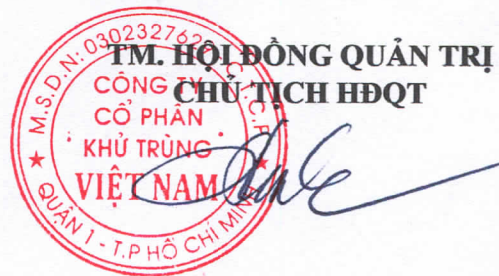 TM. HỘI ĐỒNG QUẢN TRỊ
CHỦ TỊCH HĐQT
M.S.D.N: 0302327629 - C.T.C.P
CÔNG TY
CỔ PHẦN
KHỬ TRÙNG
VIỆT NAM
QUẬN 1 - T.P HỒ CHÍ MINH